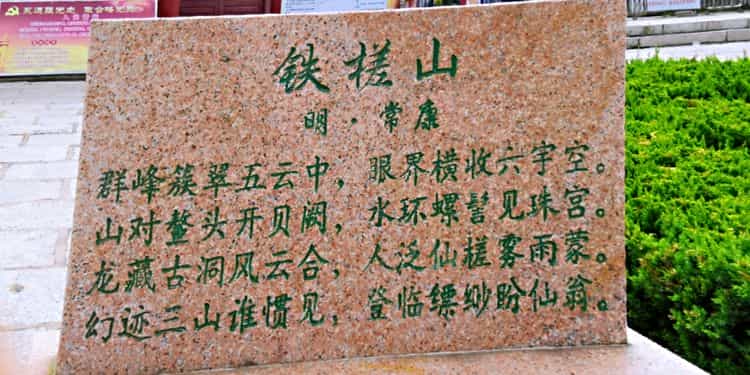 铁槎山
明·常康
群峰簇翠五云中，眼界横收六宇空。
山对鳌头开贝阙，水环螺髻见珠宫。
龙藏古洞风云合，人泛仙槎雾雨蒙。
幻迹三山谁惯见，登临缥缈盼仙翁。